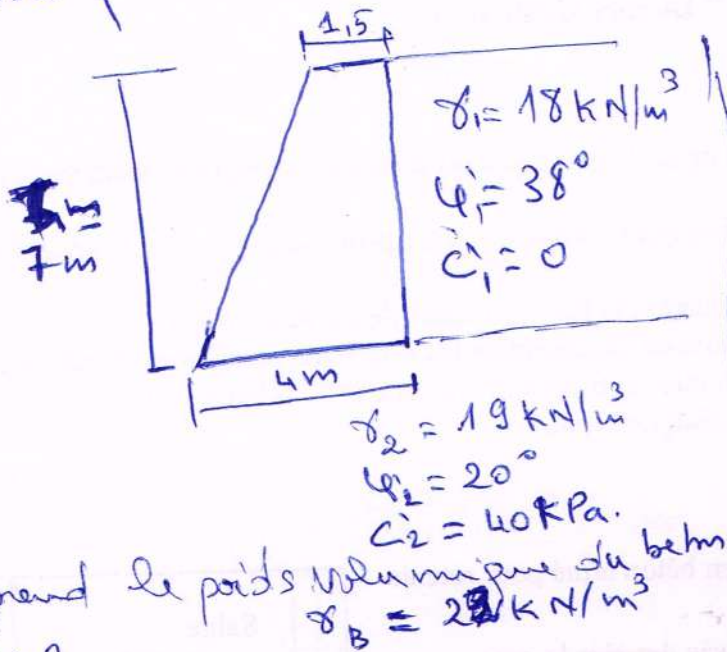 1,5
7 m
γ₁ = 18 kN/m³
φ'₁ = 38°
C'₁ = 0
4 m
γ₂ = 19 kN/m³
φ'₂ = 20°
C'₂ = 40 kPa.
le poids volumique du beton
γ_B = 22 kN/m³